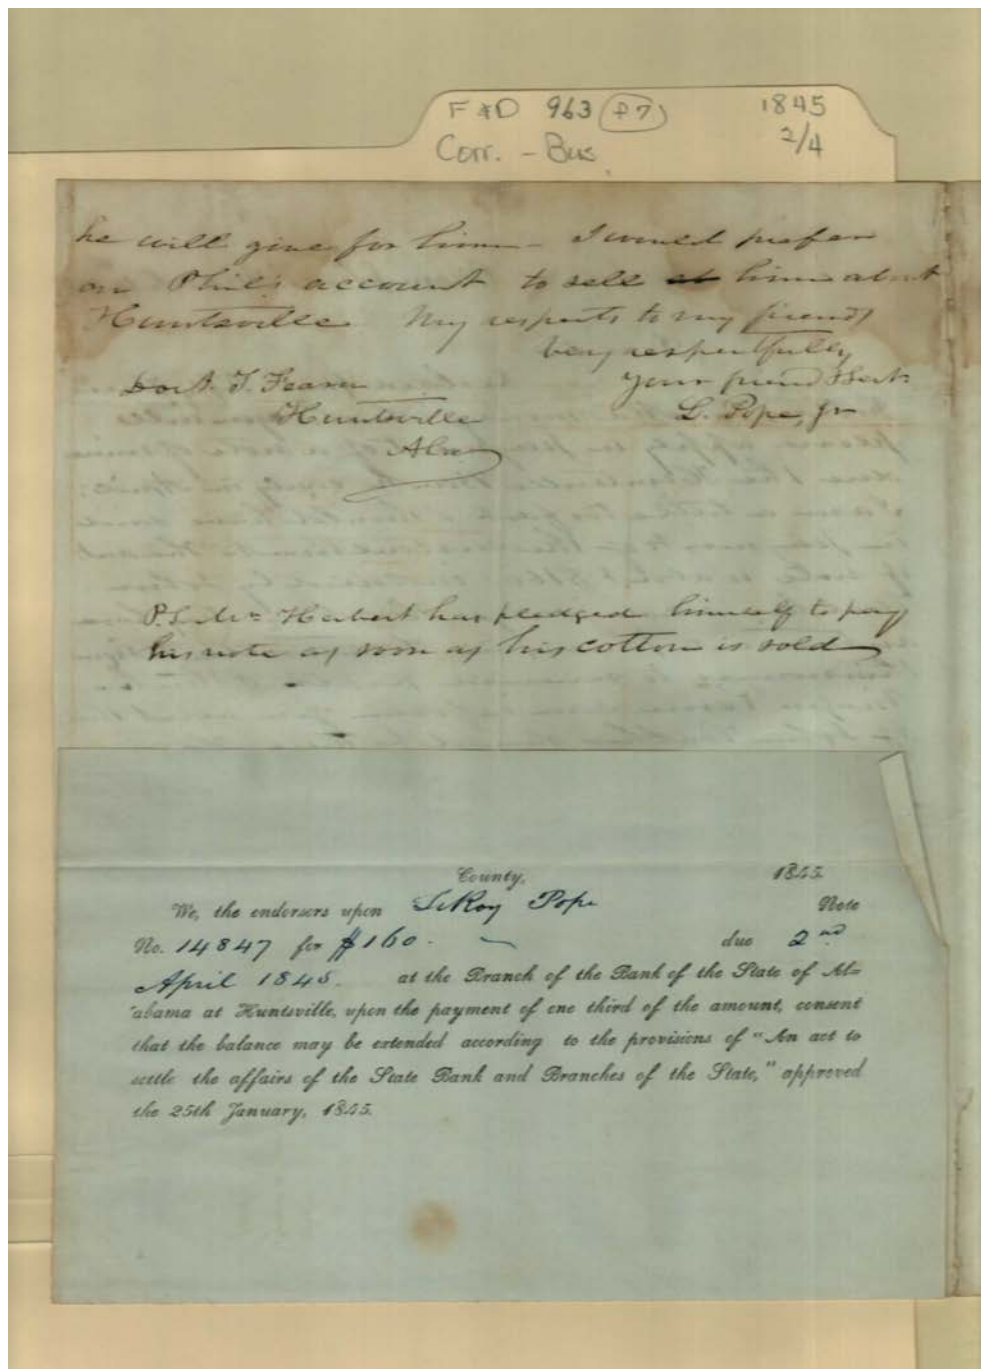 F & D 963 (P7) 1845
Corr. - Bus. 2/4
he will give for him - I would prefer
on Phil's account to sell him about
Huntsville My respects to my friends
very respectfully
Doct. T. Fearn your friend &
Huntsville L. Pope, Jr
Ala
P.S. Mr Herbert has pledged himself to pay
his note as soon as his cotton is sold
County, 1845.
We, the endorsers upon LeRoy Pope Note
No. 14847 for $160. due 2nd
April 1845. at the Branch of the Bank of the State of Al-
abama at Huntsville, upon the payment of one third of the amount, consent
that the balance may be extended according to the provisions of "An act to
settle the affairs of the State Bank and Branches of the State," approved
the 25th January, 1845.